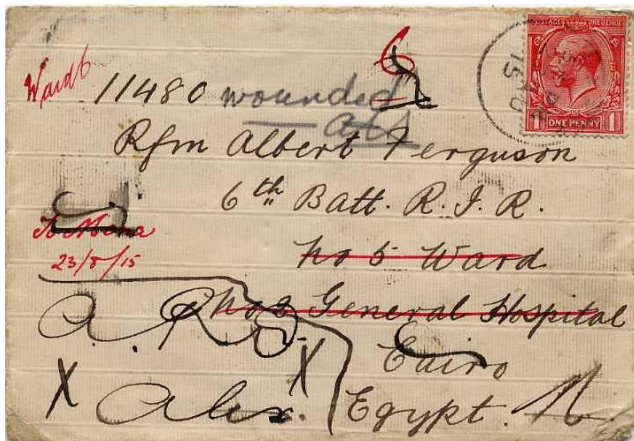 Ward 6
11480 wounded
Rfm Albert Ferguson
6th Batt. R. I. R.
No 5 Ward
23/8/15
No 2 General Hospital
Cairo
Alex. Egypt.
1 ONE PENNY 1